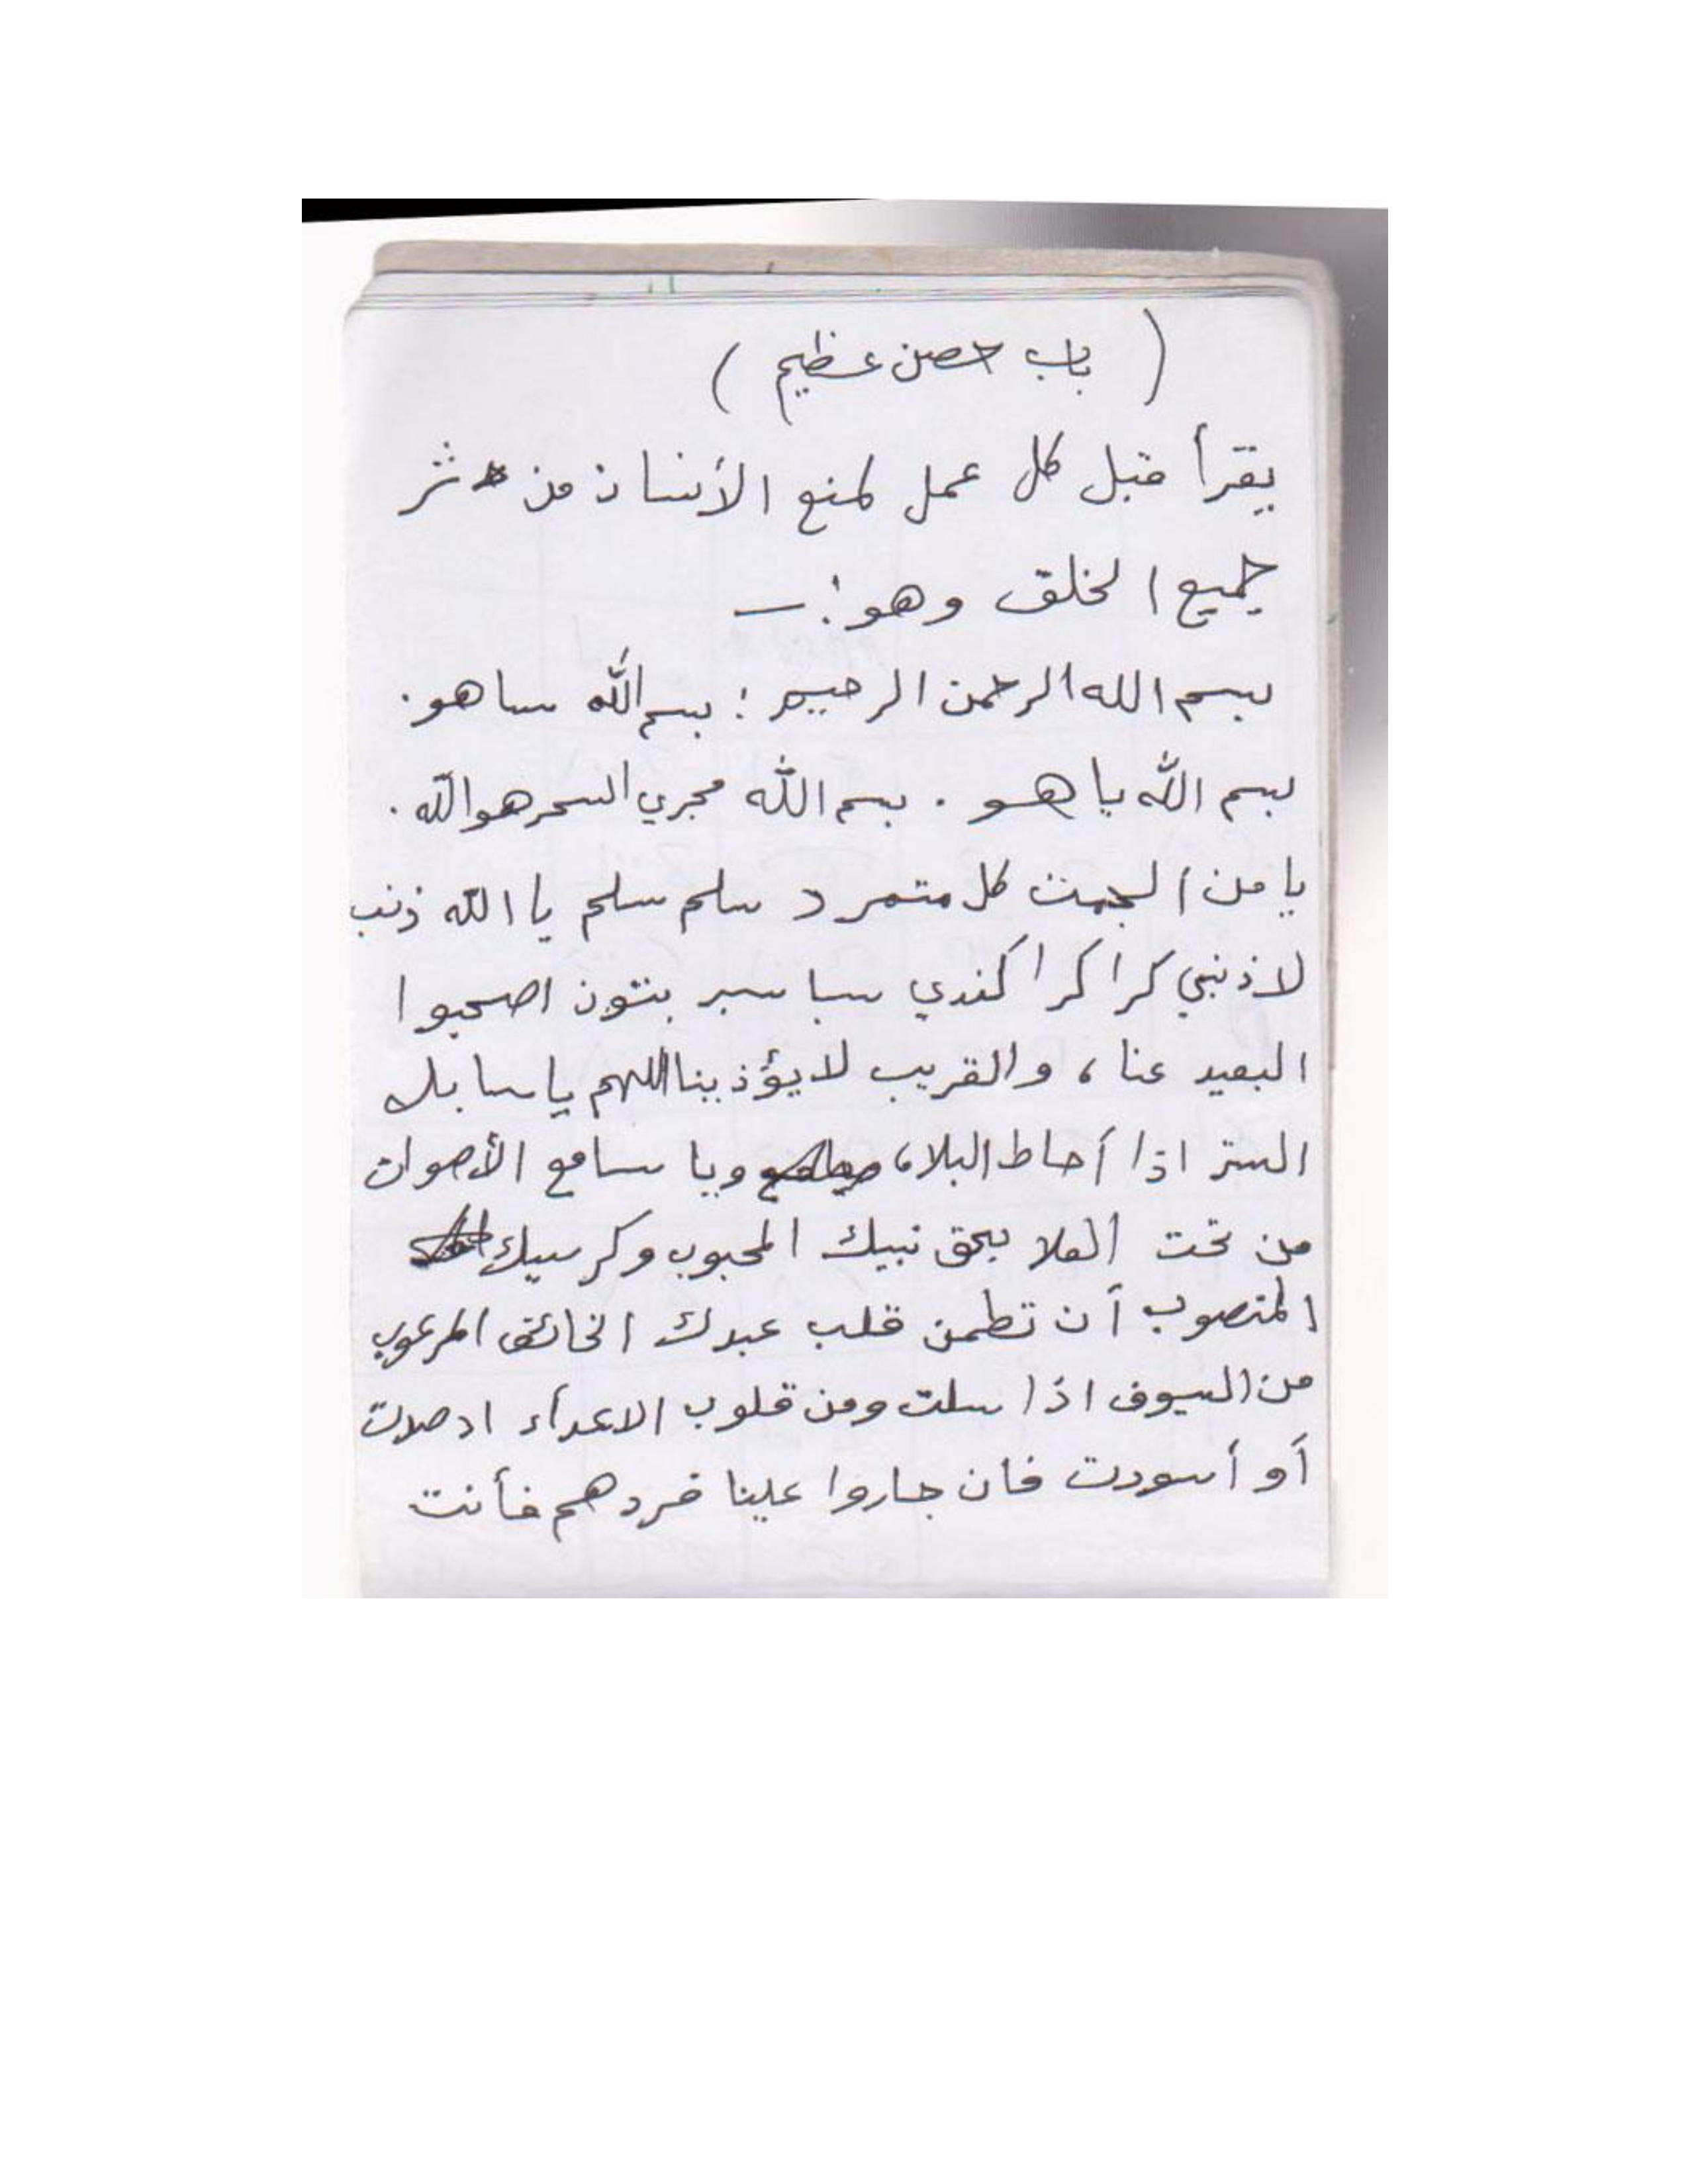 ( باب حصن عظيم )
يقرأ قبل كل عمل لمنع الأنسان من شر
جميع الخلق وهو :ـ
بسم الله الرحمن الرحيم : بسم الله ساهو .
بسم الله ياهو . بسم الله مجري السحر هو الله .
يا من الجمت كل متمرد سلم سلم يا الله ذنب
لاذنبي كرا كرا كندي سبا سبر بنتون اصحبوا
البعيد عنا ، والقريب لا يؤذينا اللهم يا سابل
الستر اذا أحاط البلاء ويا سامع الأصوات
من تحت العلا بحق نبيك المحبوب وكرسيك
المنصوب أن تطمن قلب عبدك الخائف المرعوب
من السيوف اذا سلت ومن قلوب الاعداء
أو أسودت فان جاروا علينا فردهم فأنت